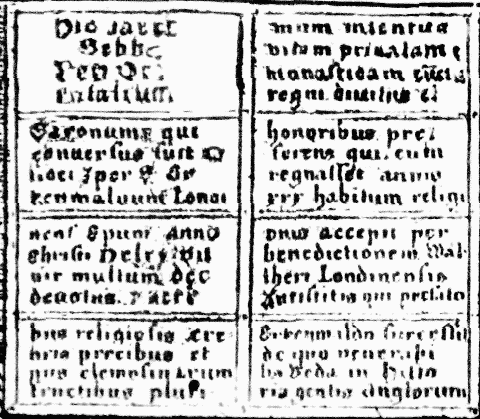 Hic jacet
Sebba
Rex Ori
entalium
Saxonum qui
conversus fuit ad
fidei per S Er
kenwaldum Londi
nens Epum Anno
christi
vir multum deo
devotus acti
bus religiosis cre
bris precibus et
piis elemosinarum
fructibus pluri
mum intentus
vitam privatam et
monasticam
regni divitiis et
honoribus pre
ferens qui cum
regnasset annis
xxx habitum religi
osus accepit per
benedictionem Wal
theri Londinensis
Antistitis qui prefato
Erkenwaldo successit
de quo venerabi
lis Beda in histo
ria gentis Anglorum